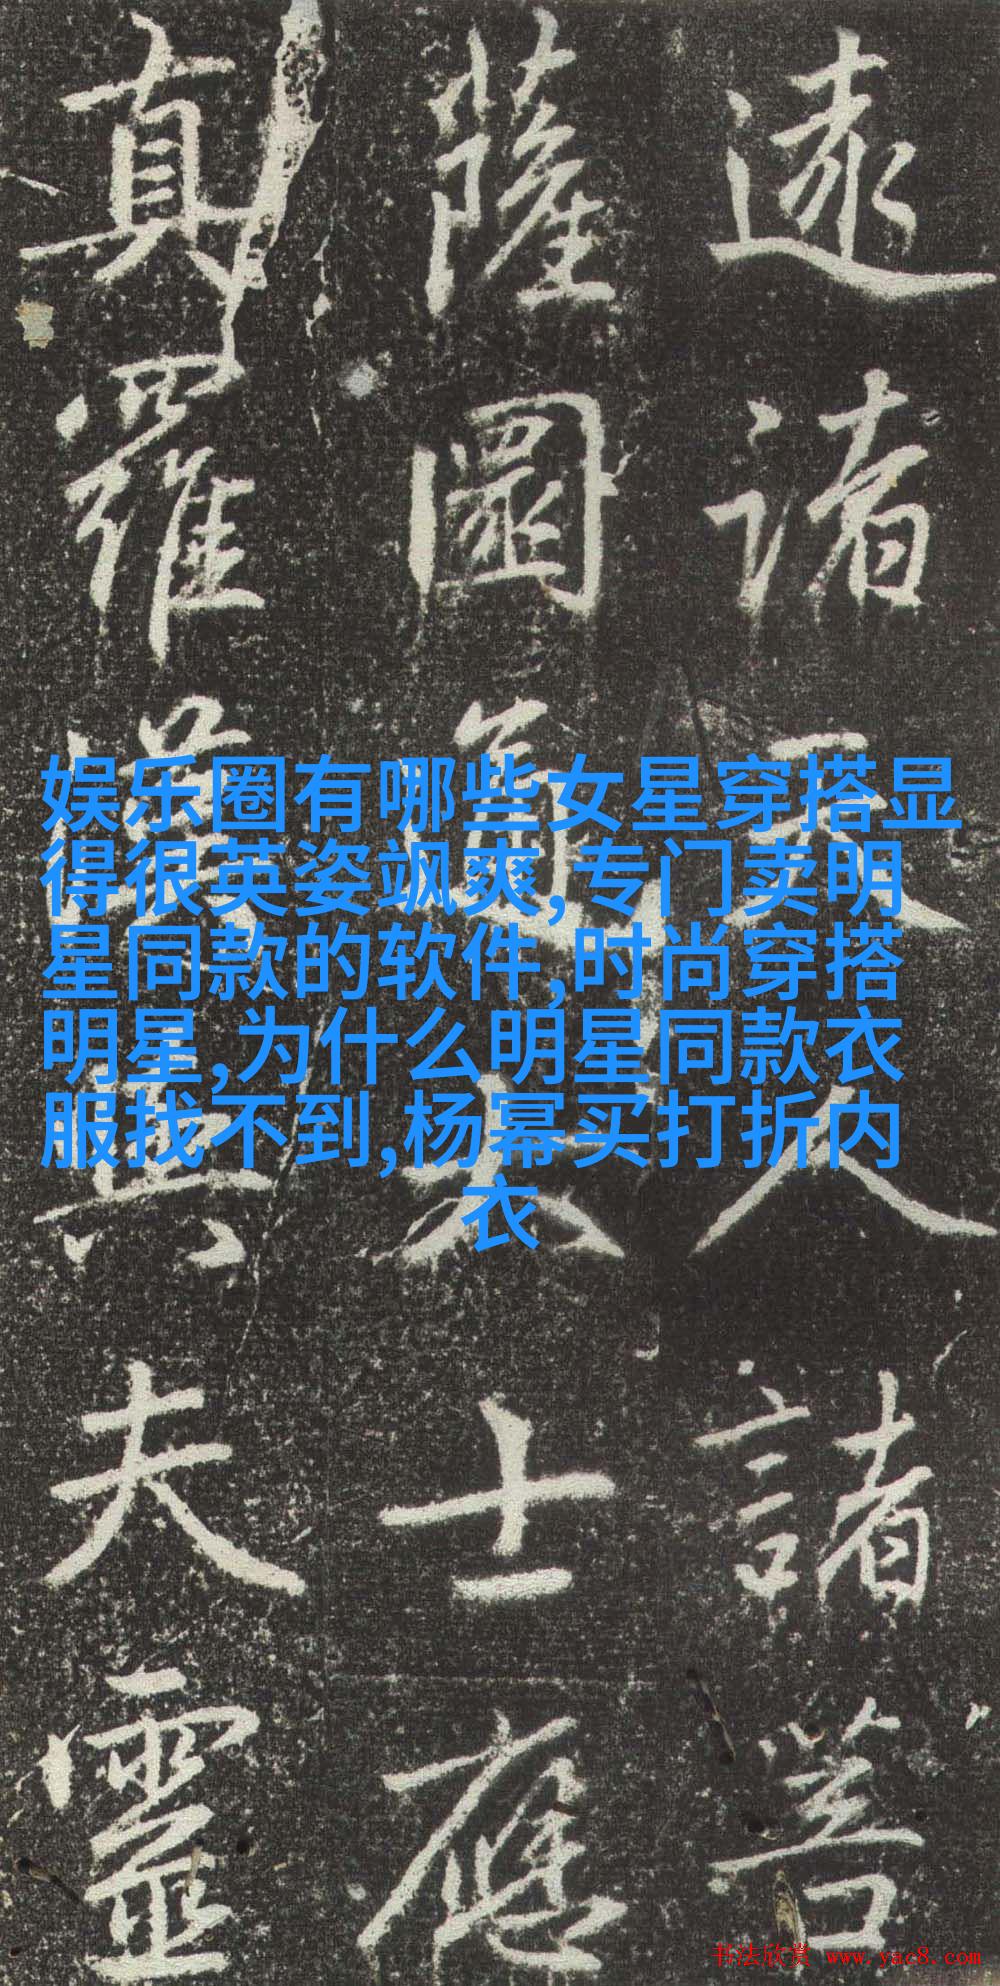 娱乐圈有哪些女星穿搭显
得很英姿飒爽,专门卖明
星同款的软件,时尚穿搭
明星,为什么明星同款衣
服找不到,杨幂买打折内
衣
諸天人諸菩
薩大士應
真羅漢與夫靈
书法欣赏 www.yac8.com